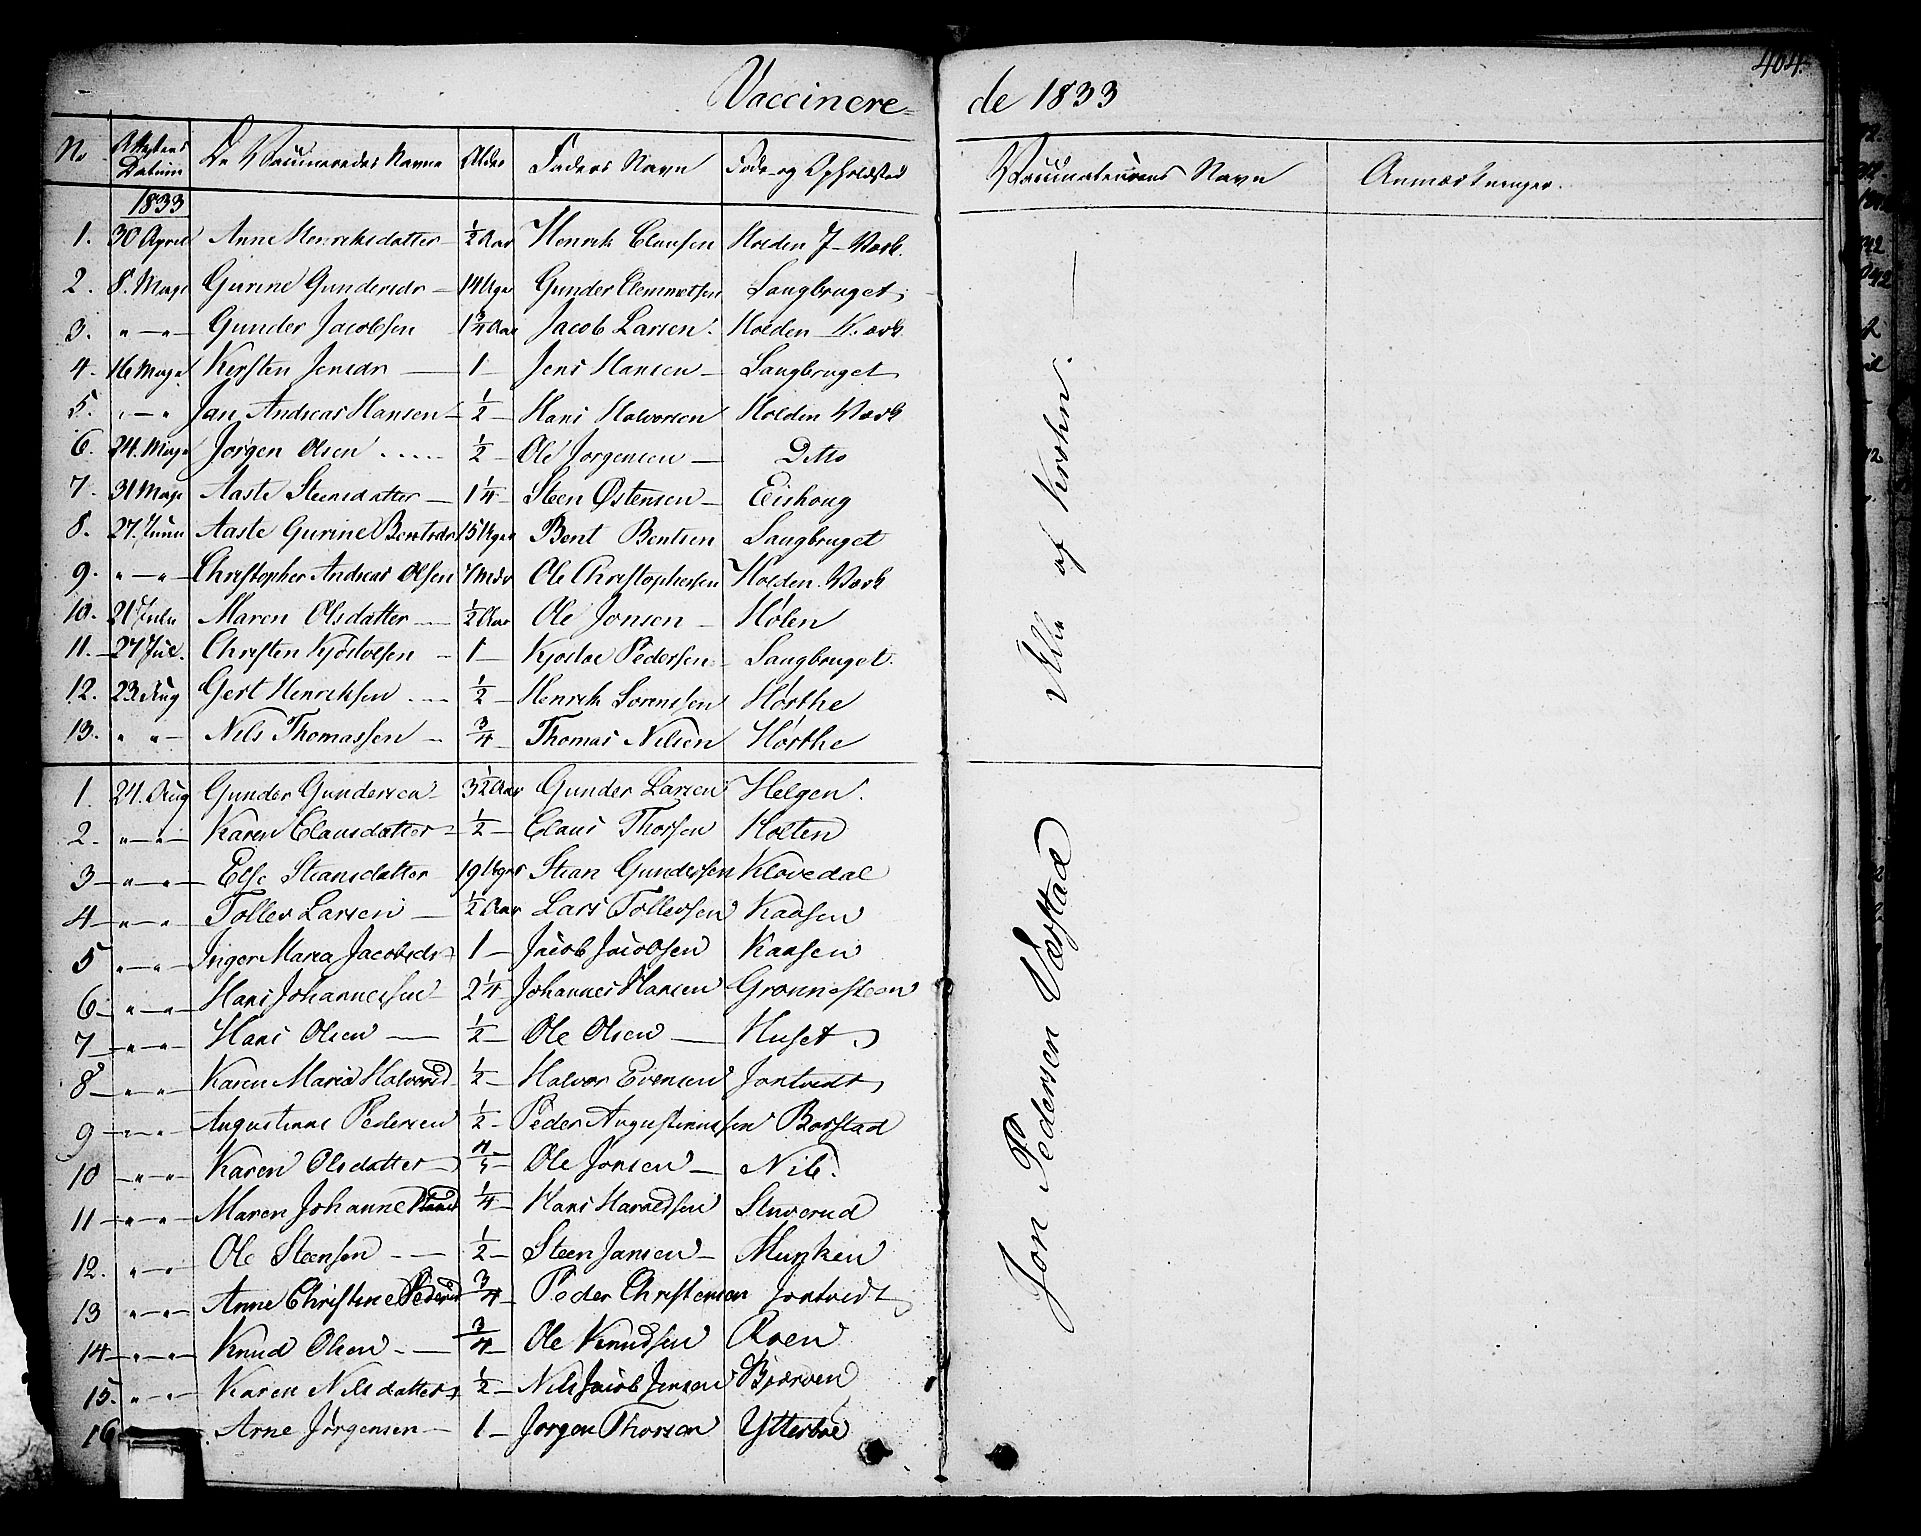 404.
Vaccinere- de 1833
No Attestens Datum De Vaccineredes Navne Alder Faders Navn Føde- og Opholdsted Vaccinateurens Navn Anmærkninger.
1833
1. 30 April Anne Henriksdatter - ½ Aar Henrik Clausen Holden J- Værk.
2. 8. Maye Gurine Gundersdr - 14 Uger Gunder Clemmetsen Saugbruget
3. " - " - Gunder Jacobsen 1¾ Aar Jacob Larsen. Holden - V. ærk
4 - 16 Maye. Kirsten Jensdr - 1 - Jens Hansen - Saugbruget
5. " - " Jan Andreas Hansen - ½ - Hans Halvorsen Holden Værk
6. 24. Maye Jørgen Olsen ..... ½ - Ole Jørgensen - Ditto
7. 31 Maye Aaste Steensdatter - 1¼ - Steen Østensen - Eishoug
8. 27. Juni Aaste Gurine Bentsdr 15 Uger Bent Bentsen Saugbruget
9. " - " - Christopher Andreas Olsen Mdr Ole Christophersen Holden. Værk
10. 21 Juli Maren Olsdatter - ½ Aar Ole Jonsen - Holen
11. - 27 Jul. Christen Kjøstolsen - 1 - Kjøstol Pedersen - Saugbruget.
12. 23 Aug Gert Henriksen ... - ½ - Henrik Sorensen Hørthe
13. " " - Nils Thomassen - ¾ - Thomas Nilsen Hørthe
Alle af Kirken. -
1. 24. Aug Gunder Gundersen - 3½ Aar Gunder Larsen Helgen.
2. " - " - Karen Clausdatter - ½ - Claus Thorsen Holten
3 - " - " - Else Steansdatter 19 Uger Stean Gundersen Klovedal
4 - " - " Tollev Larsen - ½ Aar Lars Tollevsen Kaasen
5 " - " - Inger Maria Jacobsdr 1 - Jacob Jacobsen Kaasen
6 - " - " - Hans Johannessen - 2¼ - Johannes Hansen Gronnesteen
7 - " - " - Hans Olsen - ½ - Ole Olsen - Huset
8 - " - " Karen Maria Halvorsd ½ - Halvor Evensen Jontvedt
9 - " - " Augustinus Pedersen ½ - Peder Augustinussen Borstad
10 - " - " - Karen Olsdatter - Ole Jonsen - Nil.
11 - " - " - Maren Johanne ¼ - Hans Stuverud
12. " - " Ole Steensen - - ½ - Steen Jansen - Munken
13 " - " - Anne Christine Pedersd ¾ - Peder Christensen Jontvedt
14 - " - " - Knud Olsen - - ¾ - Ole Knudsen Roen
15. " - " - Karen Nilsdatter ½ - Nils Jacob Jensen
16 Arne Jørgensen - 1 - Jørgen Thorsen Ytterboe
Jon Pedersen Værstad